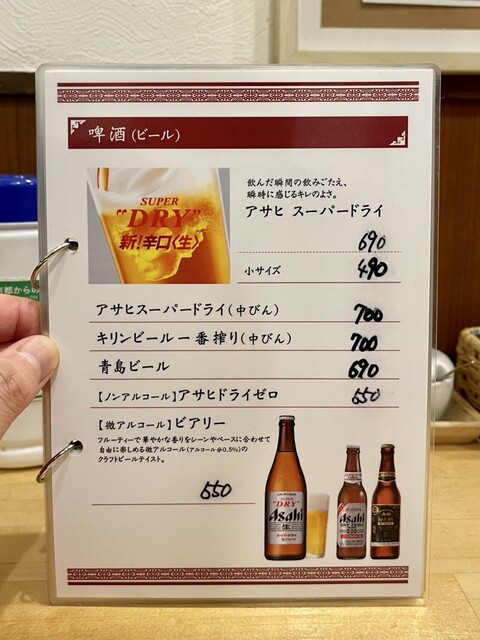 啤酒(ビール)
SUPER
"DRY"
新!辛口〈生〉
飲んだ瞬間の飲みごたえ、
瞬時に感じるキレのよさ。
アサヒ スーパードライ
690
小サイズ 490
アサヒスーパードライ(中びん) 700
キリンビール一番搾り(中びん) 700
青島ビール 690
【ノンアルコール】アサヒドライゼロ 550
【微アルコール】ビアリー
フルーティーで華やかな香りをシーンやペースに合わせて
自由に楽しめる微アルコール(アルコール分0.5%)の
クラフトビールテイスト。
550
"DRY"
Asahi
生
Asahi
DRY ZERO
0.00
京都からの